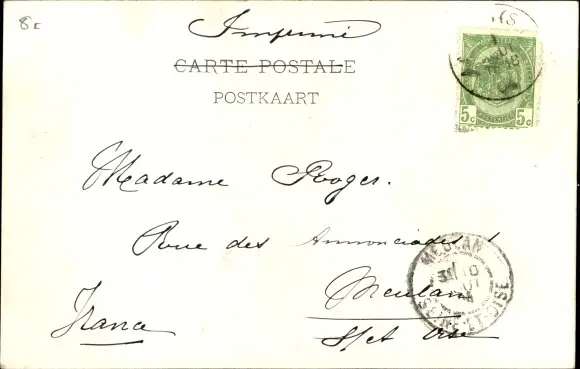 8E
Imprimé
CARTE POSTALE
POSTKAART
5c 5c
Madame Roger.
Rue des Annonciades!
Meulan
S/et Oise
France
MEULAN
SEINE-ET-OISE